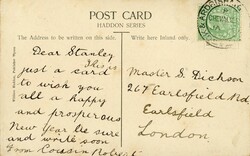 POST CARD
HADDON SERIES
The Address to be written on this side.
Write here Inland only.
Dear Stanley
This is
just a card
to wish you
all a happy
and prosperous
New Year be sure
and write soon
From Cousin Robert
Master S. Dickson
267 Earlsfield Rd
Earlsfield
London